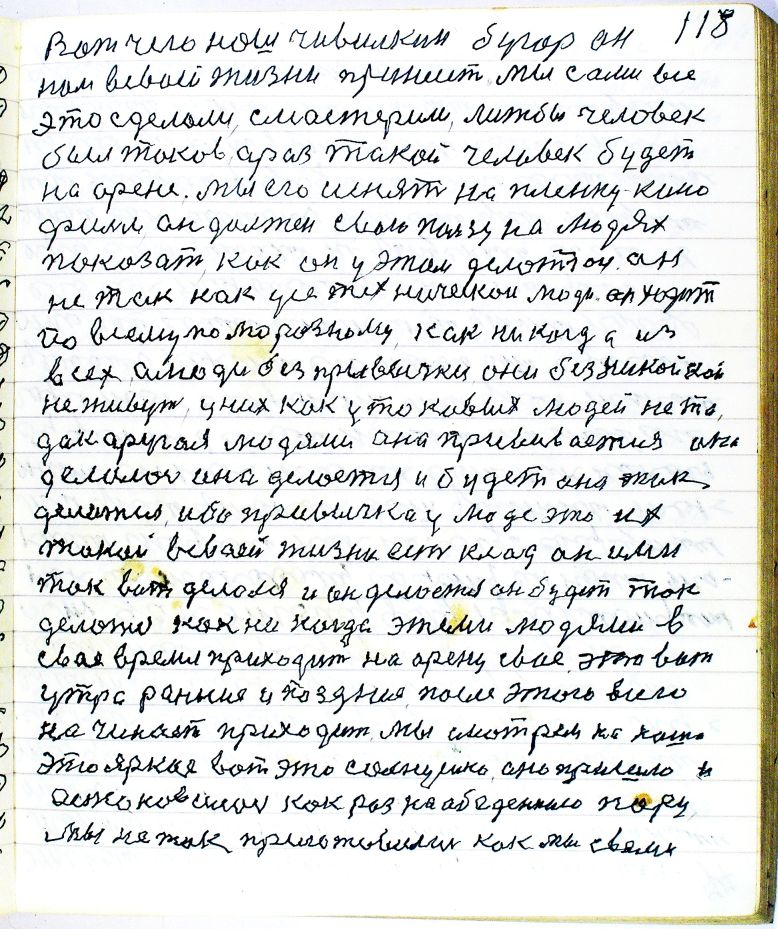 118
Вот чего наш чивилкин бугор он
нам в своей жизни принист. Мы сами все
это сделали, смастерили, лиж бы человек
был таков, а раз такой человек будет
на арене. Мы его иснять на пленку кино
филм, он должен свою ползу на людях
показать, как он у этом делотся. он
не так как усе технически люди он ходит
по всему по моразному, как никогда из
всех, а люди без привычки они без никой
не живут, у них как у токовых людей нето,
дак другая людями она прививается она
делалась она делается и будеть она так
делатся, ибо привычка у люде это их
такой в своей жизни есть клад он ими
так вот делался и он делается он будит так
делатся как ни когда этими людями в
свае время приходит на арену свае, это вот
утра рання и поздния, после этого всего
на чинает приходит. мы смотрем на наша
это яркая вот это солнушко, оно пришло и
астоновилось как раз на абеденною пору,
мы не так приготовились как мы своими